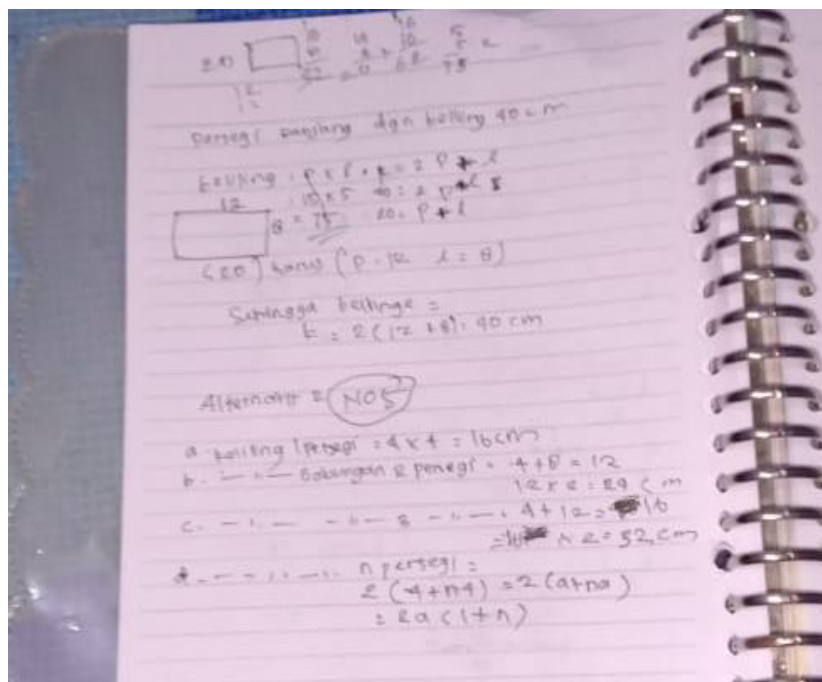 persegi panjang dgn keliling 40 cm
keliling : p x l . k = 2 p + l
12 : 15 x 5 40 = 2 p + l
8 = 75 20 = p + l
(20) harus (p . 12 l = 8)
Sehingga kelilingnya =
k = 2 (12 + 8) = 40 cm
Alternatif = NO5
a keliling 1 persegi = 4 x 4 = 16 cm
b. — " — Gabungan 2 persegi = 4 + 8 = 12
12 x 2 = 24 cm
c. — " — — " — 3 — " — = 4 + 12 = 16
= 16 x 2 = 32 cm
d. — " — n persegi =
2 (4 + n4) = 2 (a + na)
= 2a (1 + n)